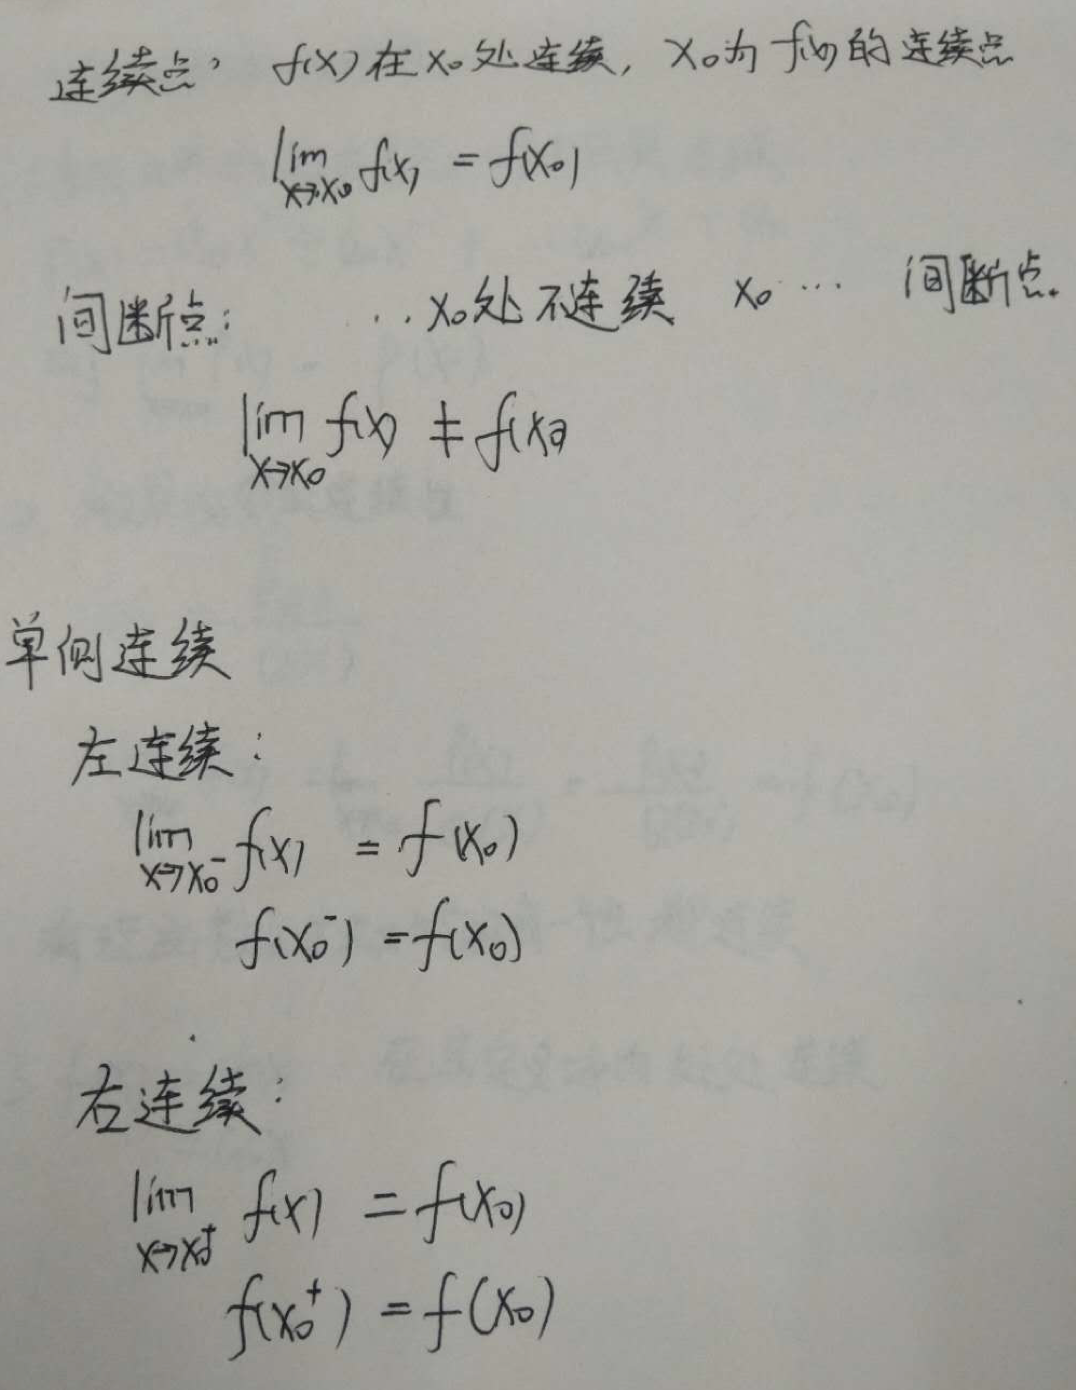 连续点, f(x) 在 x₀ 处连续, x₀为 f(x) 的连续点
lim f(x) = f(x₀)
x→x₀
间断点: ··x₀处不连续 x₀ ··· 间断点.
lim f(x) ≠ f(x₀)
x→x₀
单侧连续
左连续:
lim f(x) = f(x₀)
x→x₀⁻
f(x₀⁻) = f(x₀)
右连续:
lim f(x) = f(x₀)
x→x₀⁺
f(x₀⁺) = f(x₀)